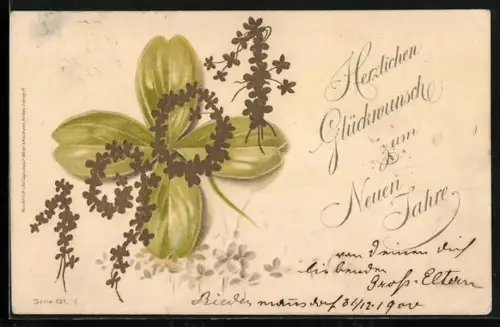 Herzlichen
Glückwunsch
zum
Neuen Jahre.
von Deinen dich
liebenden
Groß-Eltern
Biedermannsdorf 31/12. 1900
Serie 121.